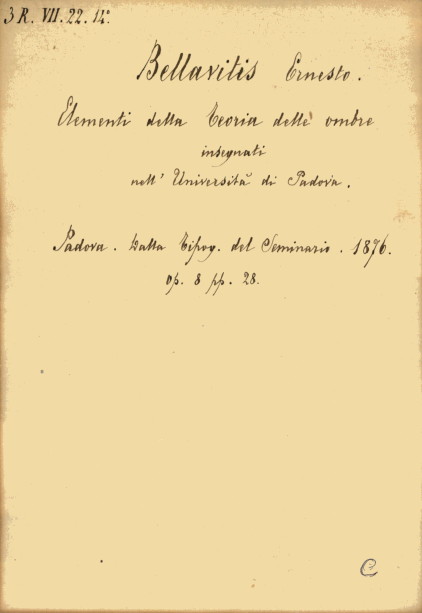 3 R. VII. 22. 14°.
Bellavitis Ernesto.
Elementi della Teoria delle ombre
insegnati
nell' Università di Padova.
Padova. Dalla Tipog. del Seminario. 1876.
op. 8 pp. 28.
C